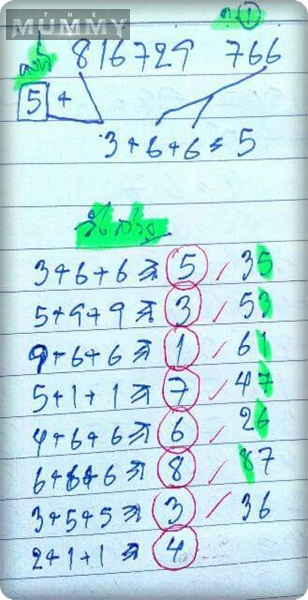 MUMMY
816729 766
5 +
3+6+6 = 5
3+6+6 ⇒ 5 ✓ 35
5+9+9 ⇒ 3 ✓ 53
9+6+6 ⇒ 1 ✓ 61
5+1+1 ⇒ 7 ✓ 47
4+6+6 ⇒ 6 ✓ 26
6+6+6 ⇒ 8 ✓ 87
3+5+5 ⇒ 3 ✓ 36
2+1+1 ⇒ 4